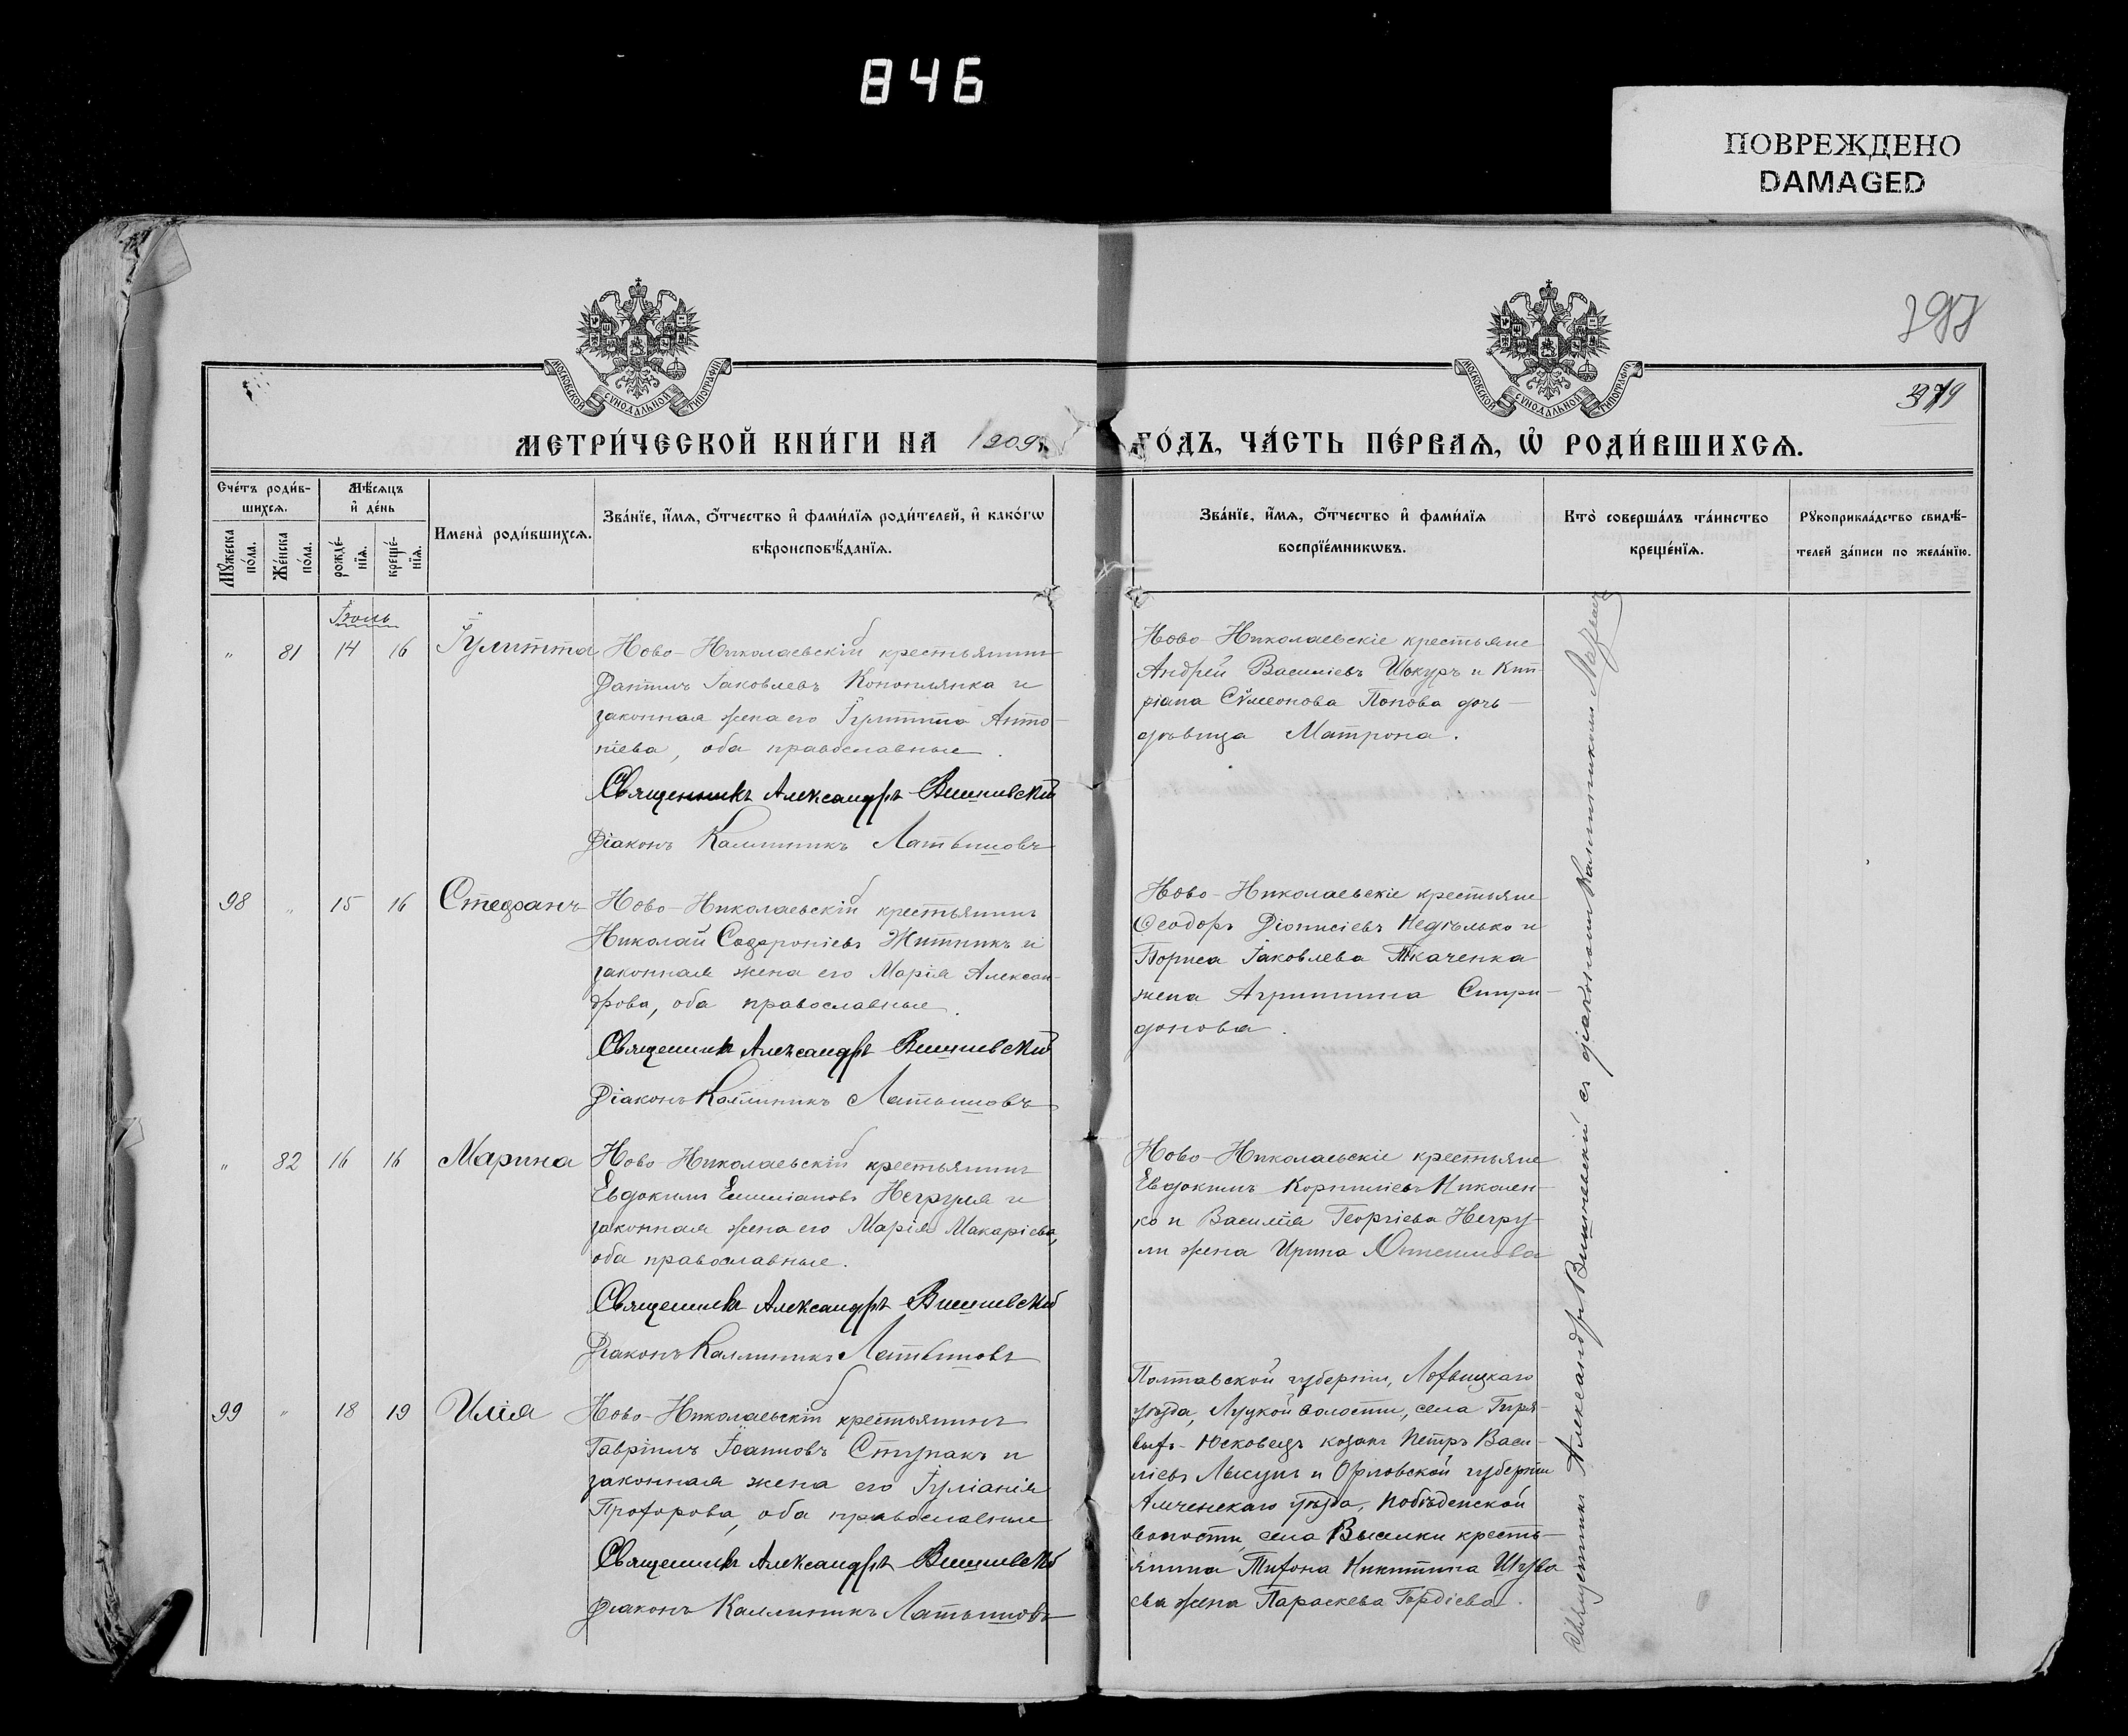 846
ПОВРЕЖДЕНО
DAMAGED
МОСКОВСКОЙ СУНОДАЛЬНОЙ ТИПОГРАФІИ
МОСКОВСКОЙ СУНОДАЛЬНОЙ ТИПОГРАФІИ
379
МЕТРИ́ЧЕСКОЙ КНИ́ГИ НА 1909
ГО́ДЪ, ЧА́СТЬ ПЕ́РВАѦ, Ѡ҆ РОДИ́ВШИХСѦ.
Сче́тъ роди́в-
шихсѧ.
Мꙋ́жеска по́ла.
Же́нска по́ла.
Мѣ́сѧцъ
и҆ де́нь
рожде́-
нїѧ.
креще́-
нїѧ.
Имена̀ роди́вшихсѧ.
Зва́нїе, и҆́мѧ, ѻ҆́тчество и҆ фами́лїѧ роди́телей, и҆ како́гѡ
вѣроисповѣ́данїѧ.
Зва́нїе, и҆́мѧ, ѻ҆́тчество и҆ фами́лїѧ
воспрїе́мникѡвъ.
Кто̀ соверша́лъ та́инство
креще́нїѧ.
Рꙋкоприкла́дство свидѣ́-
телей за́писи по жела́нїю.
Іюль
" 81 14 16 Іулитта
Ново-Николаевскій крестьянинъ
Даніилъ Іаковлевъ Коноплянка и
законная жена его Іулитта Анто-
ніева, оба православные.
Священникъ Александръ Вишневскій
Діаконъ Каллиникъ Латышовъ
Ново-Николаевскіе крестьяне
Андрей Василіевъ Шокуръ и Кип-
ріана Сѵмеонова Попова дочь-
дѣвица Матрона.
98 " 15 16 Стефанъ
Ново-Николаевскій крестьянинъ
Николай Софроніевъ Житникъ и
законная жена его Марія Алексан-
дрова, оба православные.
Священникъ Александръ Вишневскій
Діаконъ Каллиникъ Латышовъ
Ново-Николаевскіе крестьяне
Ѳеодоръ Діонисіевъ Недѣлько и
Бориса Іаковлева Ткаченка
жена Агриппина Спири-
донова.
" 82 16 16 Марина
Ново-Николаевскій крестьянинъ
Евдокимъ Емиліановъ Негруля и
законная жена его Марія Макаріева,
оба православные.
Священникъ Александръ Вишневскій
Діаконъ Каллиникъ Латышовъ
Ново-Николаевскіе крестьяне
Евдокимъ Корниліевъ Николен-
ко и Василія Георгіева Негру-
ли жена Ирина
99 " 18 19 Илія
Ново-Николаевскій крестьянинъ
Гавріилъ Іоанновъ Ступакъ и
законная жена его Іуліанія
Прохорова, оба православные
Священникъ Александръ Вишневскій
Діаконъ Каллиникъ Латышовъ
Полтавской губерніи, Лохвицкаго
уѣзда, Луцкой волости, села Гиря-
выхъ-Исковецъ козакъ Петръ Васи-
ліевъ Лысунъ и Орловской губерніи
уѣзда,
волости, села Выселки кресть-
янина Тихона Никитина
ева жена Параскева Гордіева.
Священникъ Александръ Вишневскій съ діакономъ Каллиникомъ